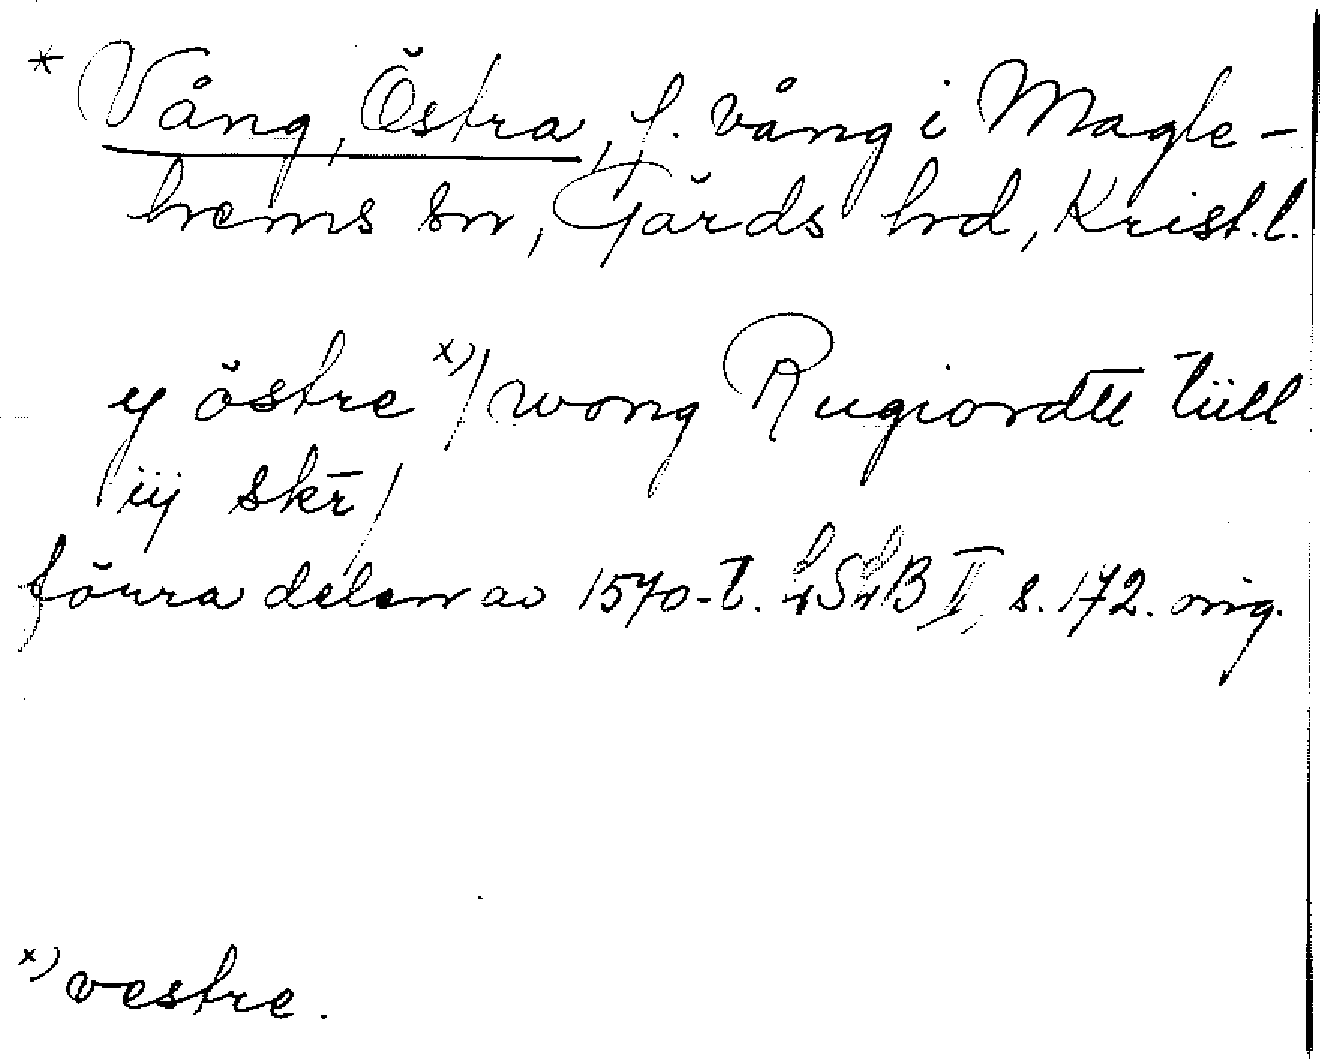 * Vång, Östra, f. vång i Magle-
hems sn, Gärds hd, Krist. l.
y östre x)/ wong Rugiordtt tüll
iij skr̄/
förra delen av 1570-t. LSLB II, s. 172. orig.
x) vestre.